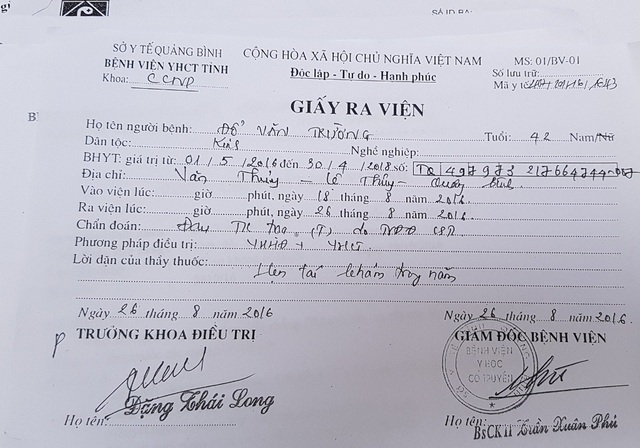 SỞ Y TẾ QUẢNG BÌNH
BỆNH VIỆN YHCT TỈNH
Khoa: CCNP
CỘNG HÒA XÃ HỘI CHỦ NGHĨA VIỆT NAM
Độc lập - Tự do - Hạnh phúc
MS: 01/BV-01
Số lưu trữ:
Mã y tế
GIẤY RA VIỆN
Họ tên người bệnh: ĐỖ VĂN TRƯỜNG Tuổi: 42 Nam/Nữ
Dân tộc: Kinh Nghề nghiệp:
BHYT: giá trị từ 01/5/2016 đến 30/4/2018 số: TQ 497973
Địa chỉ: Văn Thủy - Lệ Thủy - Quảng Bình
Vào viện lúc: giờ phút, ngày 18 tháng 8 năm 2016
Ra viện lúc: giờ phút, ngày 26 tháng 8 năm 2016
Chẩn đoán: Đau TK tọa (T) do
Phương pháp điều trị: YHHĐ + YHCT
Lời dặn của thầy thuốc: Hẹn tái khám trong năm
Ngày 26 tháng 8 năm 2016
TRƯỞNG KHOA ĐIỀU TRỊ
Đặng Thái Long
Họ tên:
Ngày 26 tháng 8 năm 2016
GIÁM ĐỐC BỆNH VIỆN
BỆNH VIỆN
Y HỌC
CỔ TRUYỀN
Họ tên: BsCKII Trần Xuân Phú